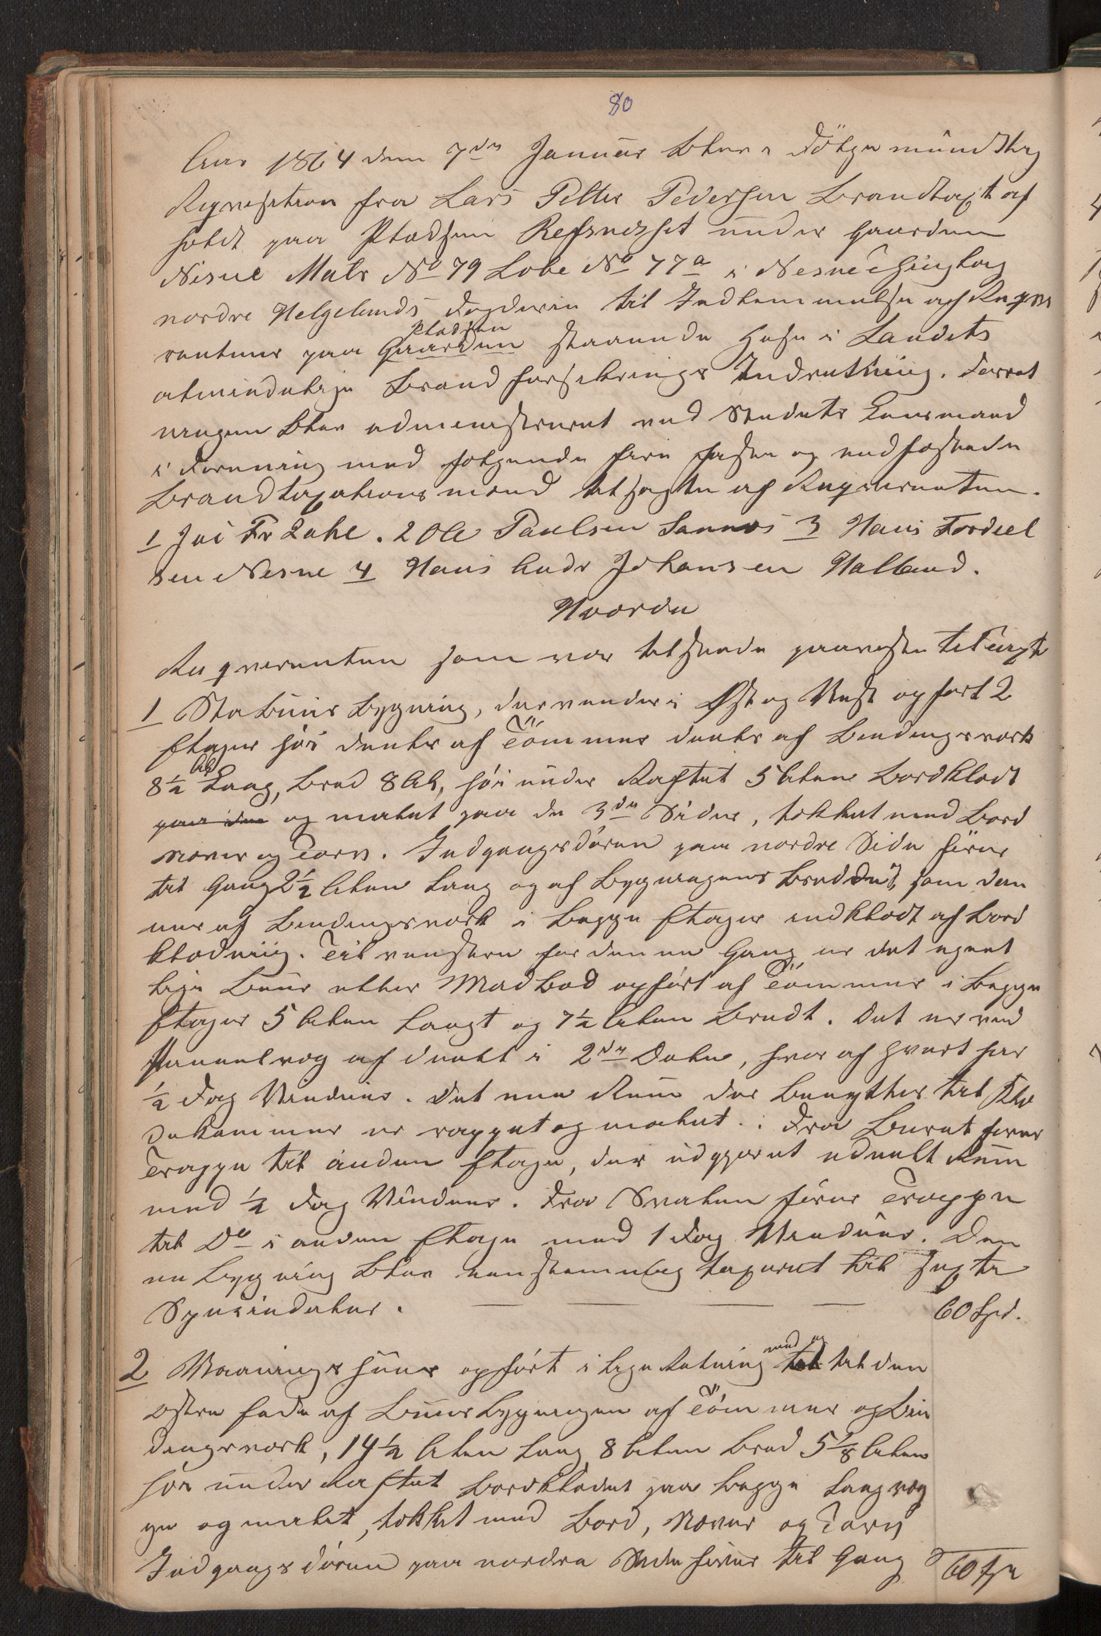 80
Aar 1864 den 7de Januar blev i Følge mundtlig
Reqvisition fra Lars Petter Pedersen Brandtaxt af
holdt paa Pladsen Refsnesset under Gaarden
Nesne Matr No 79 Løbe No 77a i Nesne Thinglag
nordre Helgelands Fogderie til Indlemmelse af Reqvi
rentens paa Gaarden Pladsen staaende Huse i Landets
almindelige Brandforsikrings Indretning. Forret
ningen blev administreret ved Stedets Lensmand
i Forening med følgende fire faste og eedfæstede
Brandtaxationsmænd tilsagte af Reqvirenten.
1 Jac Fr Zahl. 2 Ole Paulsen Sannes 3 Hans Fordeel
sen Nesne 4 Hans Andr Johansen Halland.
Hvorda
Reqvirenten som var tilstede paaviste til Taxt
1 Stabuurs Bygning, der vender i Øst og Vest opført 2
Etager høi deels af Tömmer deels af Bindingsverk
8½ Al Lang, bred 8 Al, høi under Raftet 5 Alen bordklædt
paa den og malet paa de 3de Sider, tækket med Bord
Næver og Torv. Indgangsdøren paa nordre Side fører
til Gang 2½ Alen lang og af Bygningens Bredde, som den
ne af Bindingsverk i begge Etager indklædt af Bord
klædning. Til venstre for denne Gang er det egent
lige Buur eller Madbod opført af Tömmer i begge
Etager 5 Alen langt og 7½ Alen bredt. Det er ved
Panelvæg afdeelt i 2de Dele, hvor af hvert har
½ Fag Vindues. Det ene Rum der benyttes til Klæ
dekammer er rappet og malet. Fra Buret fører
Trappe til anden Etage, der udgjøret udeelt Rum
med ½ Fag Vindues. Fra Svalen fører Trappe
til Do i anden Etage med 1 Fag Vindues. Den
ne Bygning blev eenstemmig taxeret til sexti
Speciedaler. 60 Spd.
2 Vaaningshuus opført i lige Retning med og til den
østre Side af Buursbygningen af Tömmer og Bin
dingsverk, 14½ Alen lang 8 Alen bred 5⅞ Alen
høi under Raftet bordklædet paa begge Langvæg
ge og malet, tækket med Bord, Næver og Torv
Indgangsdøren paa nordre Side fører til Gang 60 Spd